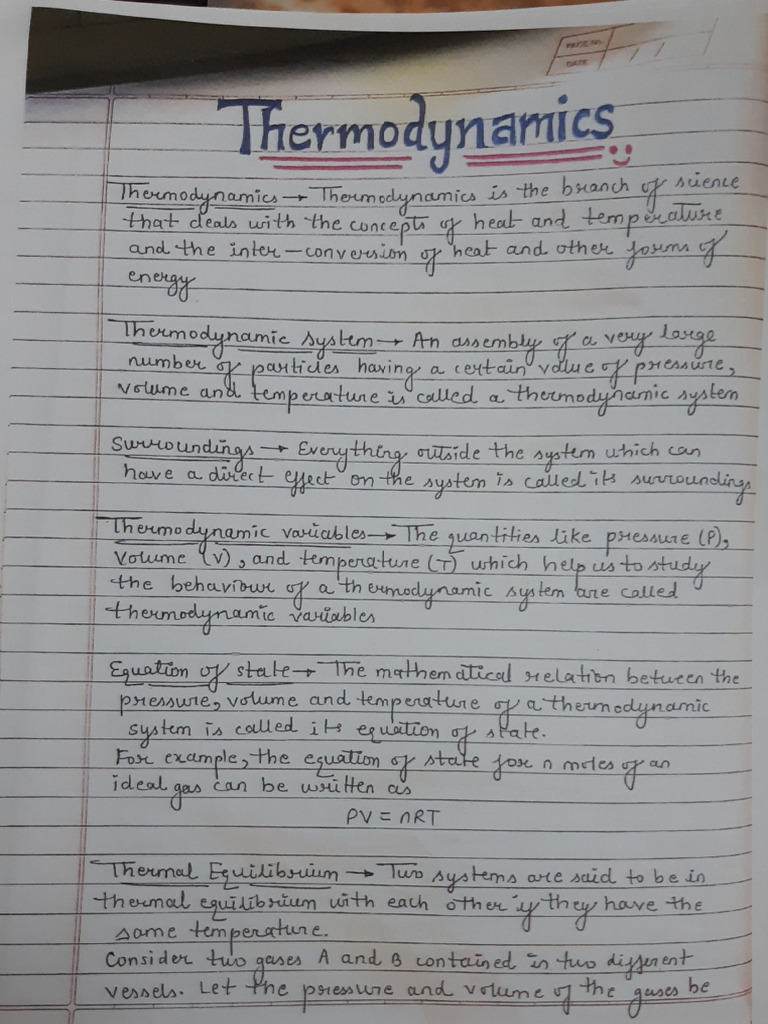 PAGE NO.
DATE
Thermodynamics
Thermodynamics → Thermodynamics is the branch of science
that deals with the concepts of heat and temperature
and the inter-conversion of heat and other forms of
energy
Thermodynamic system → An assembly of a very large
number of particles having a certain value of pressure,
volume and temperature is called a thermodynamic system
Surroundings → Everything outside the system which can
have a direct effect on the system is called its surroundings
Thermodynamic variables → The quantities like pressure (P),
volume (V), and temperature (T) which help us to study
the behaviour of a thermodynamic system are called
thermodynamic variables
Equation of state → The mathematical relation between the
pressure, volume and temperature of a thermodynamic
system is called its equation of state.
For example, the equation of state for n moles of an
ideal gas can be written as
PV = nRT
Thermal Equilibrium → Two systems are said to be in
thermal equilibrium with each other if they have the
same temperature.
Consider two gases A and B contained in two different
vessels. Let the pressure and volume of the gases be